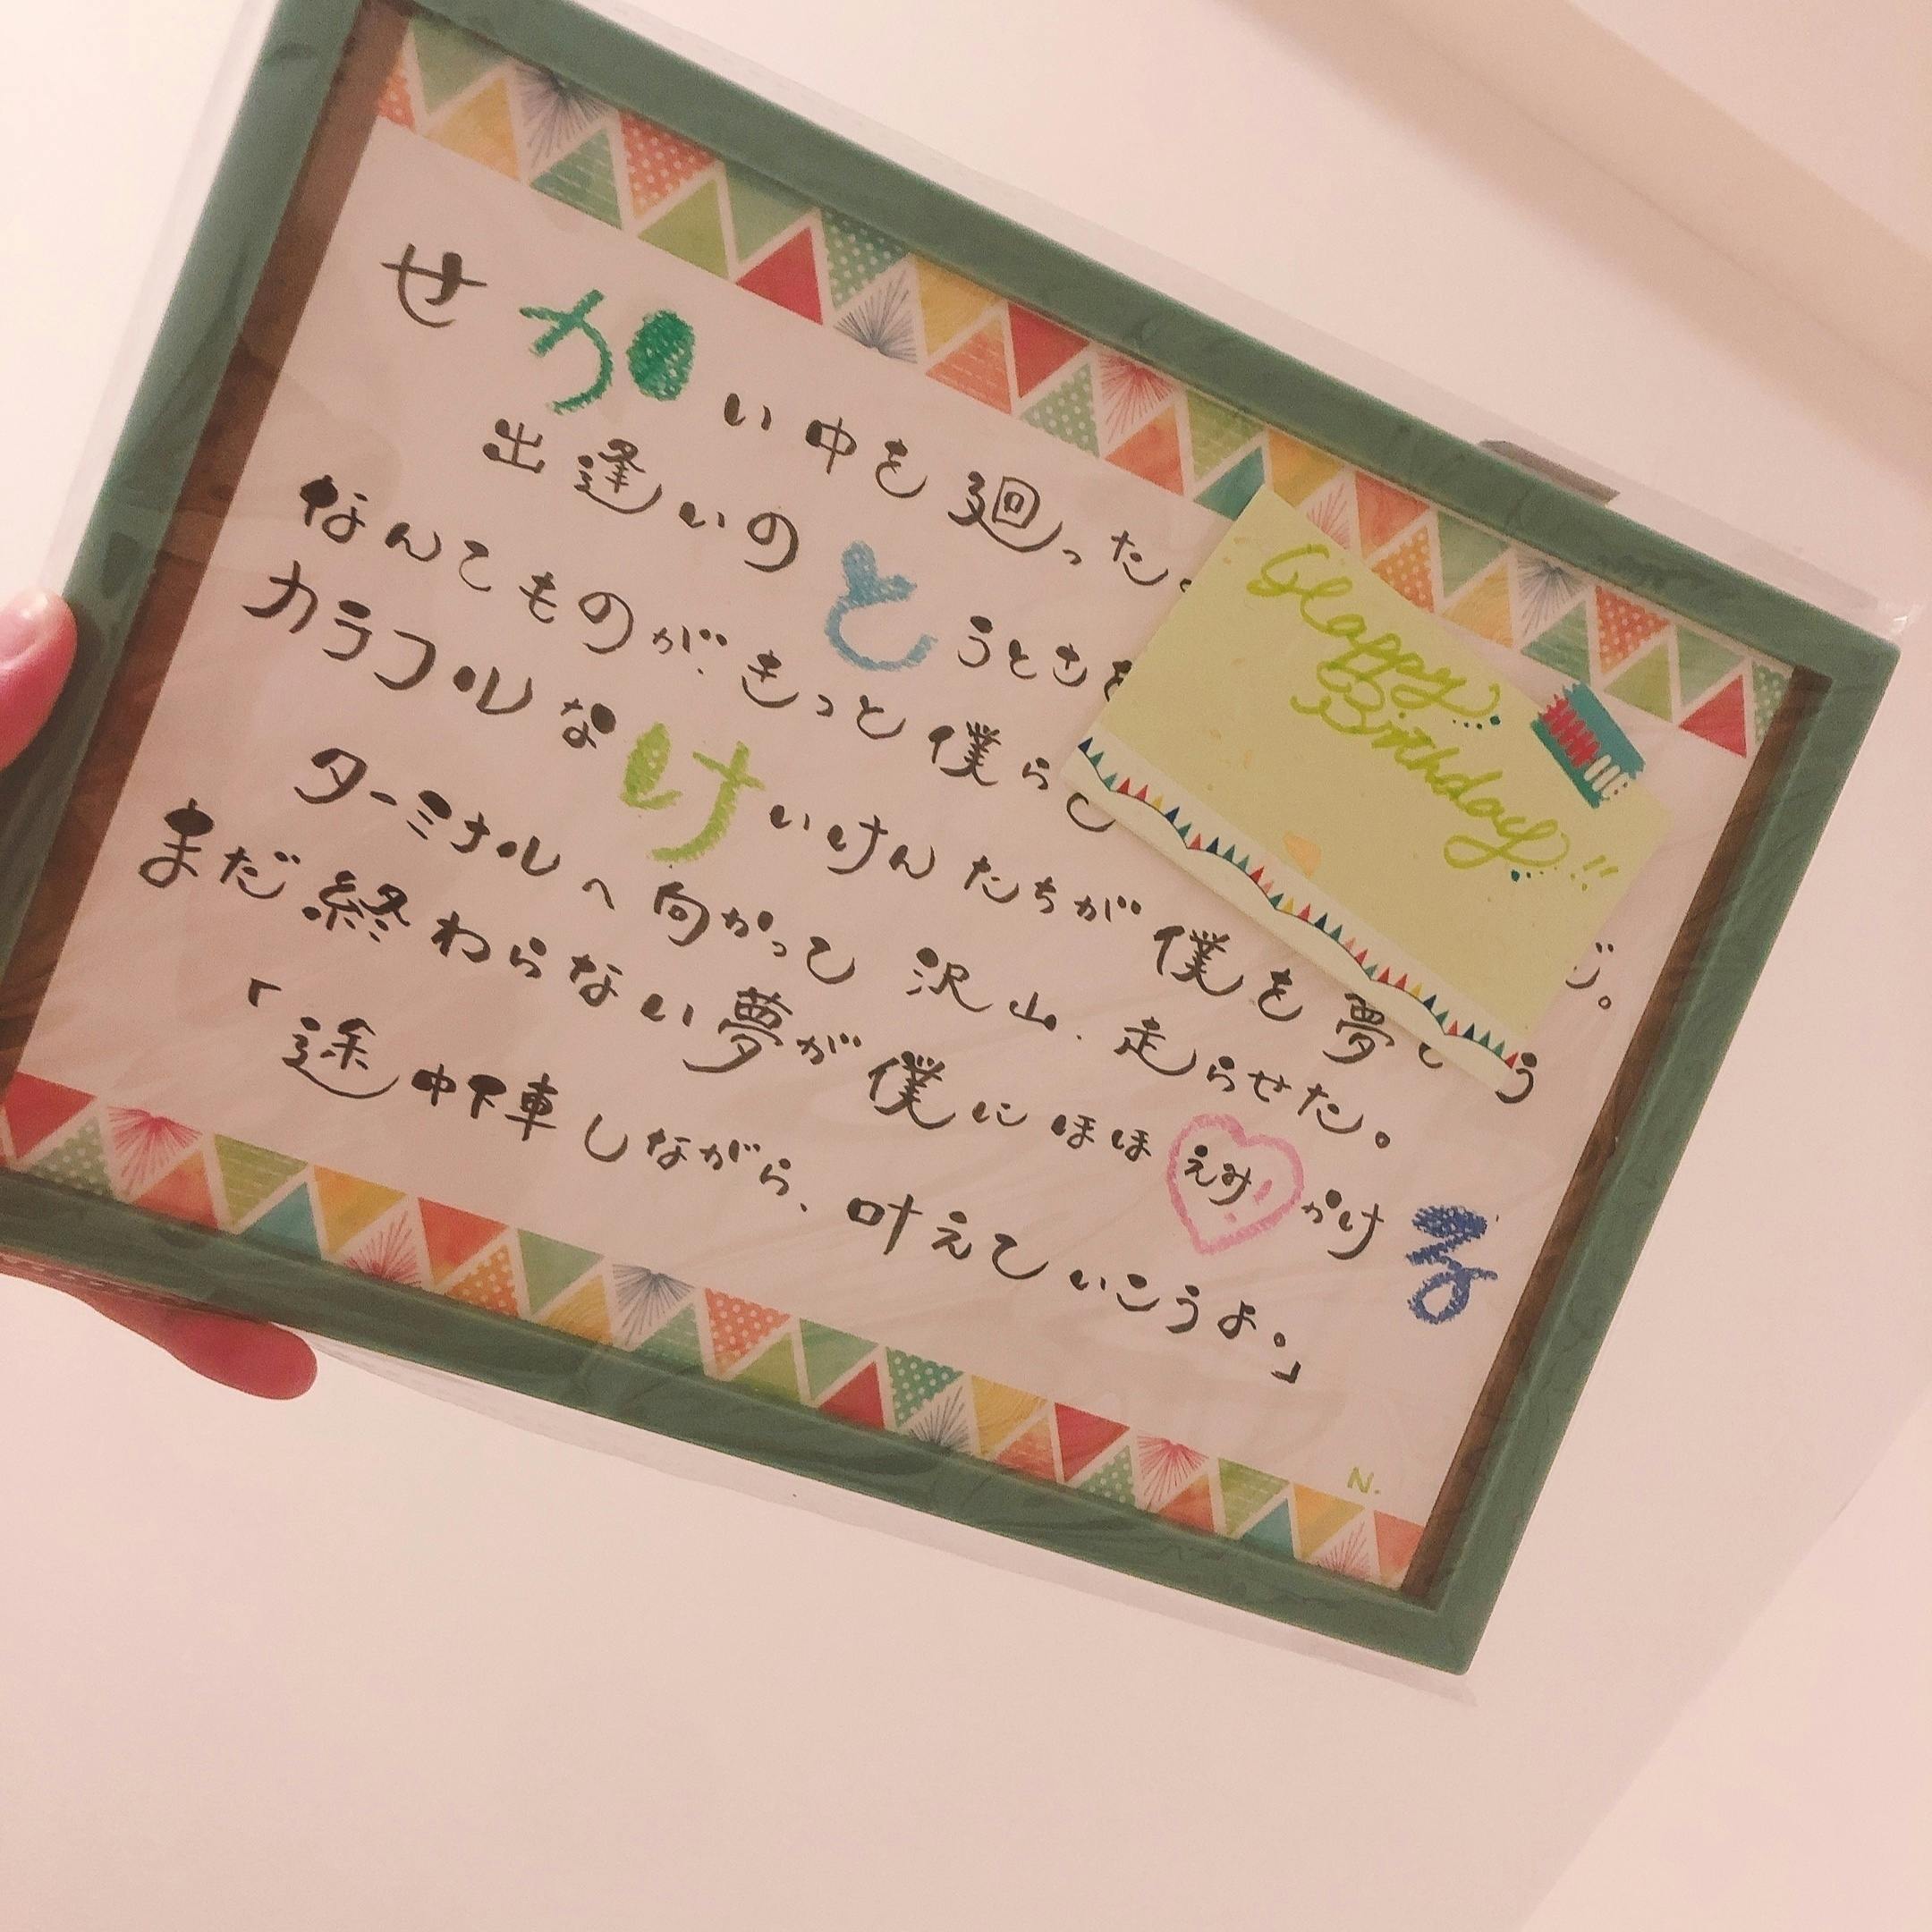 せかい中を廻った。
出逢いのとうとさを
なんてものが、きっと僕らし
カラフルなけいけんたちが僕を夢
ターミナルへ向かって沢山、走らせた。
まだ終わらない夢が僕にほほえみ!かける
「途中下車しながら、叶えていこうよ。」
N.
Happy
Birthday!!